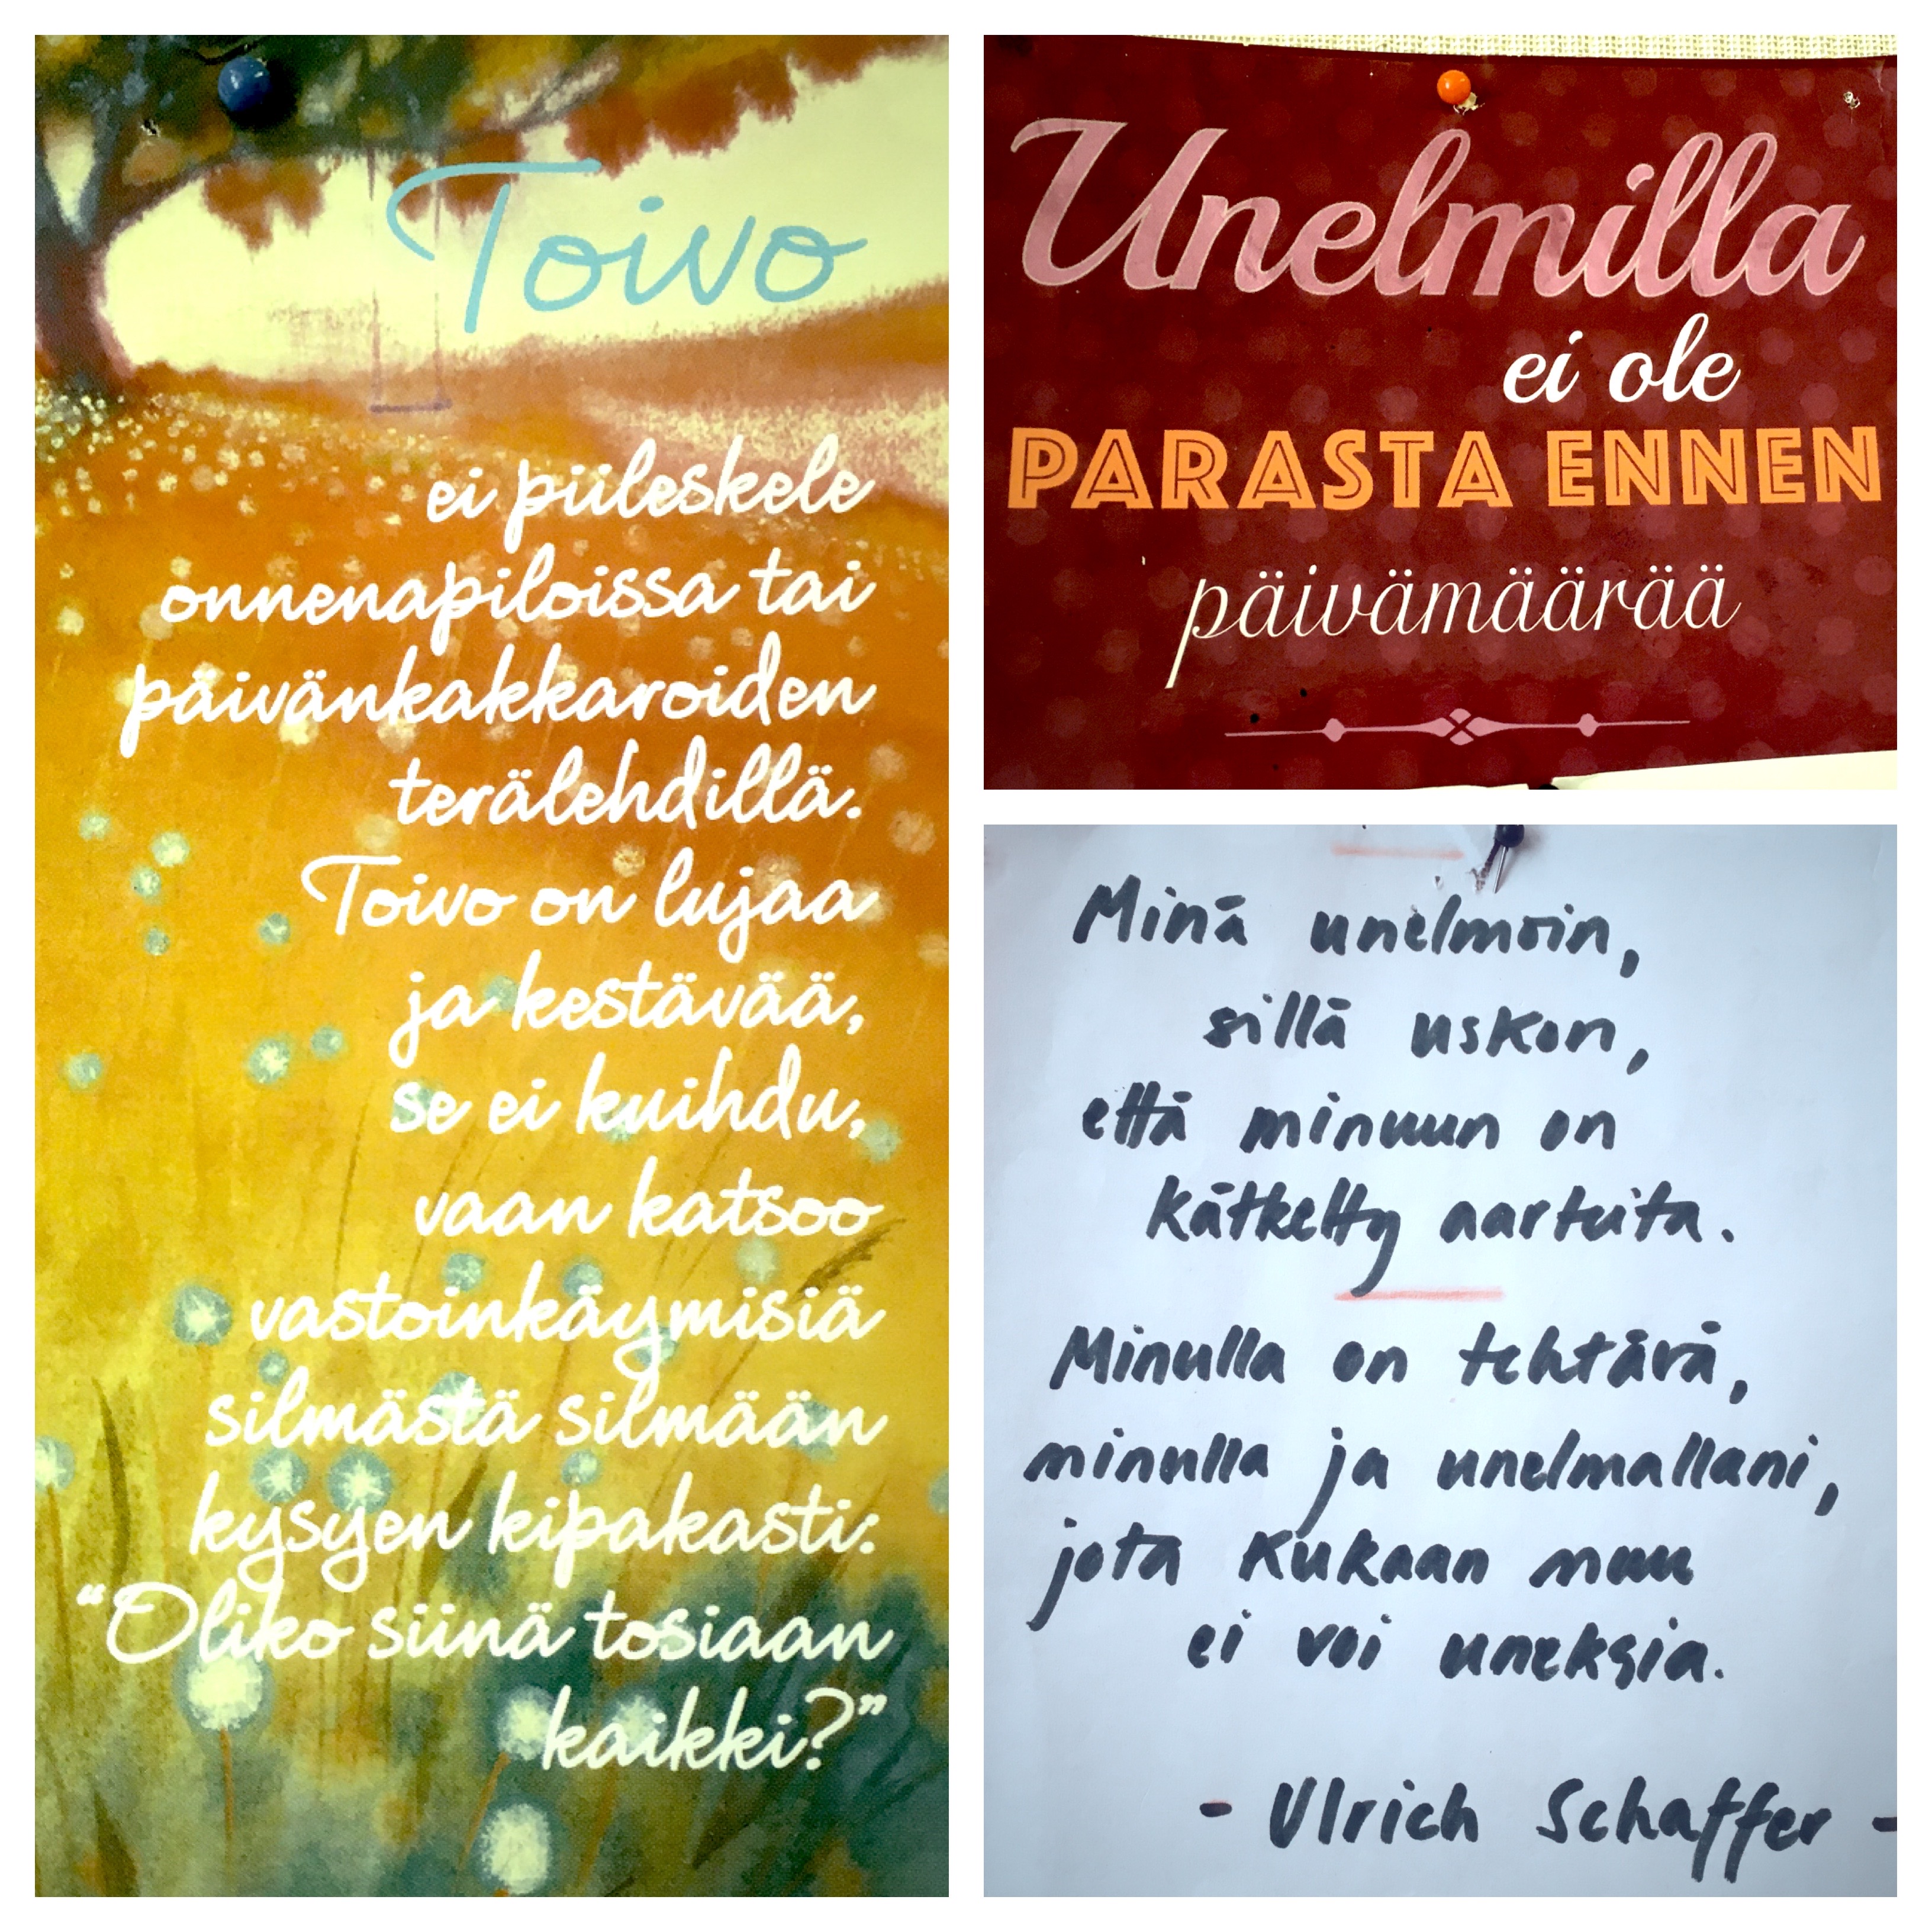 Toivo
ei piileskele
onnenapiloissa tai
päivänkakkaroiden
terälehdillä.
Toivo on lujaa
ja kestävää,
se ei kuihdu,
vaan katsoo
vastoinkäymisiä
silmästä silmään
kysyen kipakasti:
“Oliko siinä tosiaan
kaikki?”
Unelmilla
ei ole
PARASTA ENNEN
päivämäärää
Minä unelmoin,
sillä uskon,
että minuun on
kätketty aarteita.
Minulla on tehtävä,
minulla ja unelmallani,
jota kukaan muu
ei voi uneksia.
- Ulrich Schaffer -